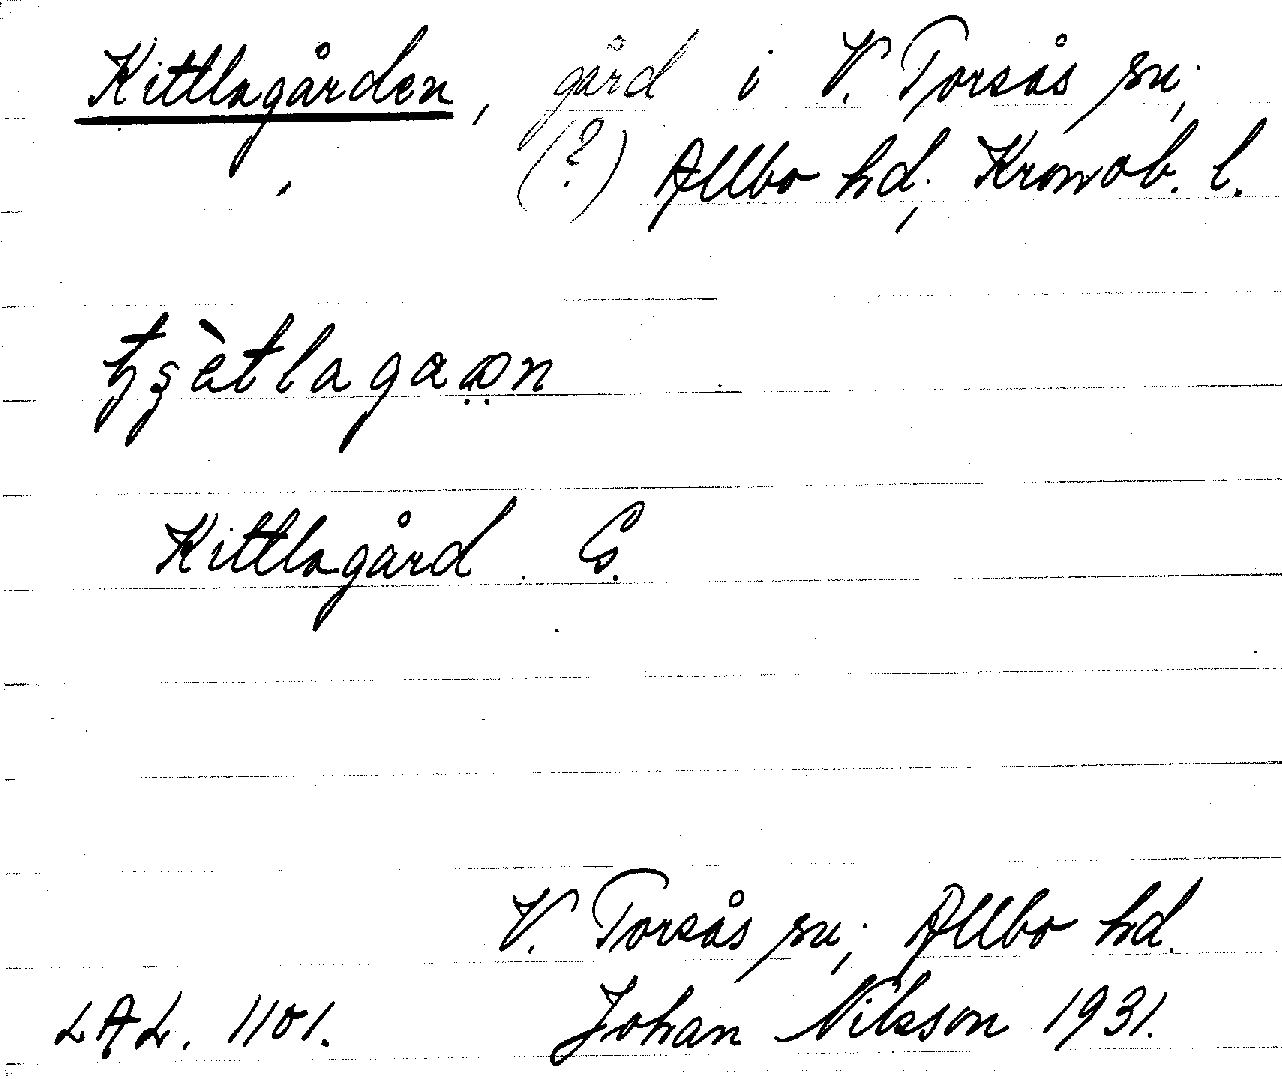 Kittlagården, gård i V. Torsås sn;
(?) Allbo hd; Kronob. l.
Kittlagård. G.
V. Torsås sn; Allbo hd.
LAL. 1101. Johan Nilsson 1931.